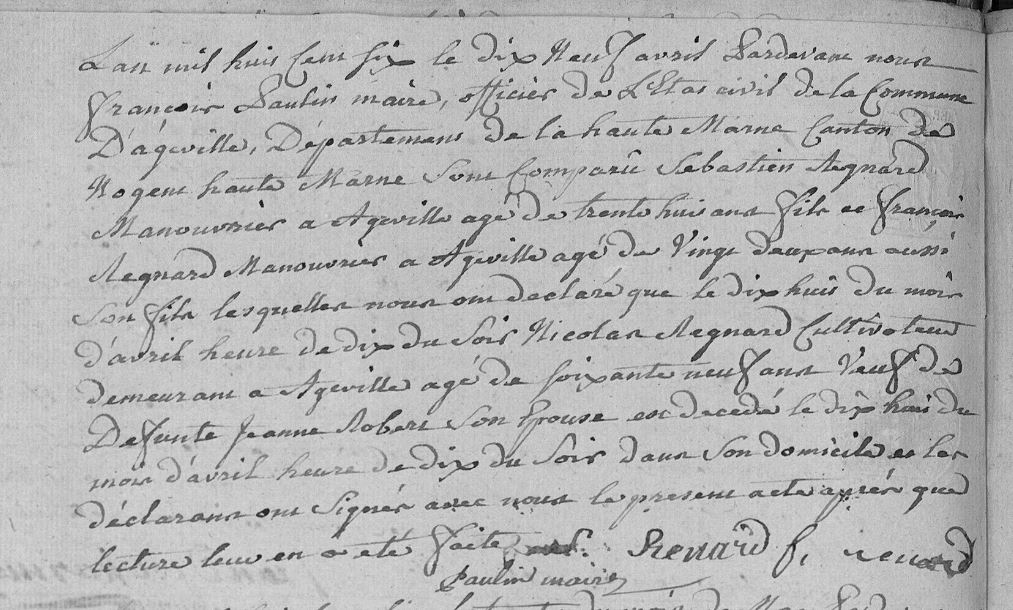 L'an mil huit Cent six le dix Neuf avril Pardevant nous
françois Paulin maire, officier de L'Etat civil de la Commune
D'ageville, Département de la haute Marne Canton de
Nogent haute Marne Sont Comparû Sebastien Regnard
Manouvrier a Ageville agé de trente huit ans fils et françois
Regnard Manouvrier a Ageville agé de Vingt deux ans aussi
Son fils lesquelles nous ont declaré que le dix huit du mois
d'avril heure de dix du Soir Nicolas Regnard Cultivateur
demeurant a Ageville agé de soixante neuf ans Veuf de
Defunte Jeanne Robert Son Epouse est decedé le dix huit du
mois d'avril heure de dix du Soir dans Son domicile et les
déclarans ont Signés avec nous le present acte après que
lecture leur en a eté faite. Renard f, renard
Paulin maire